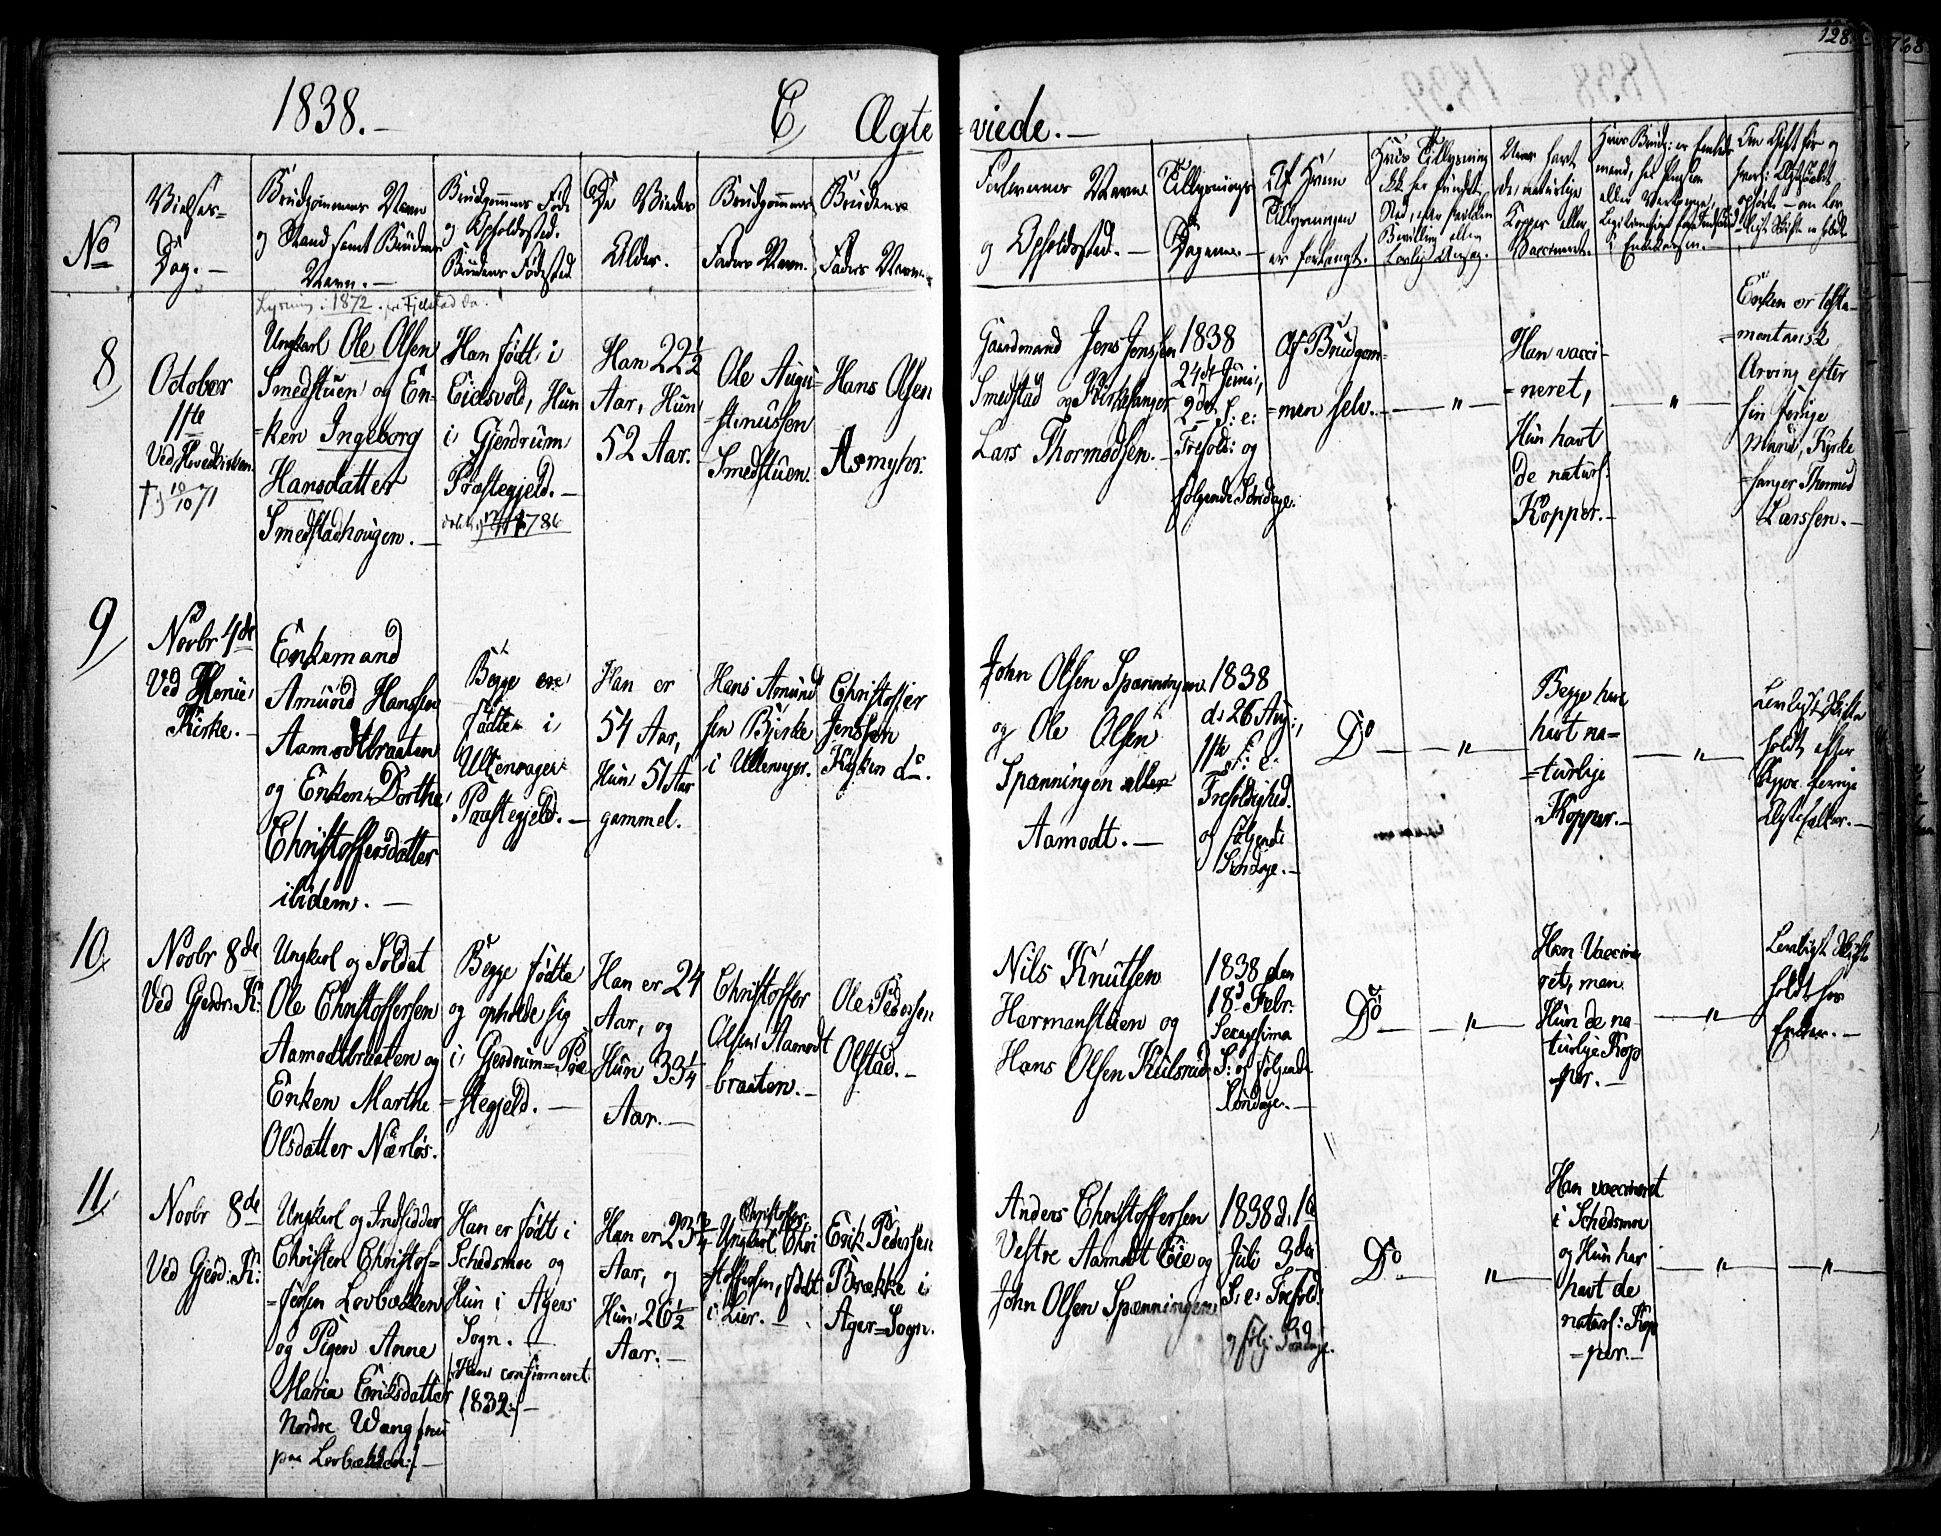 128
1838.—
C, Ægte=viede.—
No
Vielses=
Dag.—
Brudgommens Navn
og Stand samt Brudens
Navn.—
Brudgommens Føde
og Opholdssted.
Brudens Fødested
De Viedes
Alder.
Brudgommens
Faders Navn.
Brudens
Faders Navn.
Forlovernes Navne
og Opholdssted.—
Tillysnings
Dagene.—
Af Hvem
Tillysningen
er forlangt.
8,
October
1ste
Ved Hovedkirken
† 10/10 71
Lysning i 1872
Ungkarl Ole Olsen
Smedstuen og En=
=ken Ingeborg
Hansdatter
Smedstadhougen.—
Han født i
Eidsvold, Hun
i Gjerdrum
Præstegjeld.—
1786
Han 22½
Aar, Hun
52 Aar.
Ole Augu=
=stinussen
Smedstuen.
Hans Olsen
Asmyhr.
Gaardmand Jens Jenssen
Smedstad og Kirkesanger
Lars Thormodsen.—
1838
24de Juni,
2den S: e:
Trefold: og
følgende Søndage.
Af Brudgom=
=men selv.
— " —
Han vacci=
=neret,
Hun havt
de naturl:
Kopper.—
"
Enken er testa=
=mentarisk
Arving efter
sin forrige
Mand, Kirke
=sanger Thormod
Larssen.—
9,
Novbr 4de
Ved Henie
Kirke.—
Enkemand
Amund Hanssen
Aamodtbraaten
og Enken Dorthe
Christoffersdatter
ibidem.—
Begge ere
fødte i
Ullensager
Præstegjeld.—
Han er
54 Aar,
Hun 51 Aar
gammel.
Hans Amund
sen Bjerke
i Ullensager.
Christoffer
Jenssen
Kyken do.
John Olsen Spænningen
og Ole Olsen
Spænningen eller
Aamodt.—
1838
d: 26 Aug:,
11te S: e:
Trefoldighed.
og følgende
Søndage.—
Do
— " —
Begge have
havt na=
=turlige
Kopper.—
— " —
Lovligt Skifte
holdt efter
begges forrige
Ægtefæller.—
10,
Novbr 8de
Ved Gjerdr: K:
Ungkarl og Soldat
Ole Christoffersen
Aamodtbraaten og
Enken Marthe
Olsdatter Nærløs.
Begge fødte
og opholde sig
i Gjerdrum=Præ
=stegjeld.—
Han er 24
Aar, og
Hun 33¼
Aar.—
Christoffer
Olsen Aamodt
braaten.—
Ole Pedersen
Olstad.—
Nils Knutsen
Harmanstuen og
Hans Olsen Kulsrud
1838 den
18d Febr:
Sexagesima
S: og følgende
Søndage.—
Do
— " —
Han Vaccine
ret, men
Hun de na=
turlige Kop
=per.—
— " —
Lovligt Skifte
holdt hos
Enken.—
11,
Novbr 8de
Ved Gjerd: K:
Ungkarl og Indsidder
Christen Christof=
=fersen Lovbakken
og Pigen Anne
Maria Eriksdatter
Nordre Wang
paa Lovbakken.—
Han er født i
Schedsmoe og
Hun i Agers
Sogn.—
(Han confirmeret
1832.)—
Han er 23
Aar, og
Hun 26½
Aar.—
Christoffer
Ungkarl Chri
stoffersen, født
i Lier.—
Erik Pedersen
Brække i
Ager=Sogn.
Anders Christoffersen
Vestre Aamodt Eie og
John Olsen Spænningen
1838 d: 1te
Juli 3die
S: e: Trefold:
og følg: Søndage.
Do
— " —
Han vaccineret
i Schedsmoe
og Hun har
havt de
naturl: Kop
=per.—
— " —
— " —